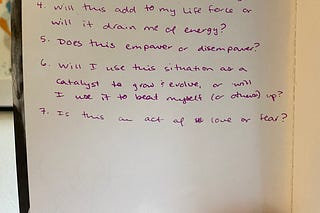 4. Will this add to my life force or
will it drain me of energy?
5. Does this empower or disempower?
6. Will I use this situation as a
catalyst to grow & evolve, or will
I use it to beat myself (or others) up?
7. Is this an act of love or fear?